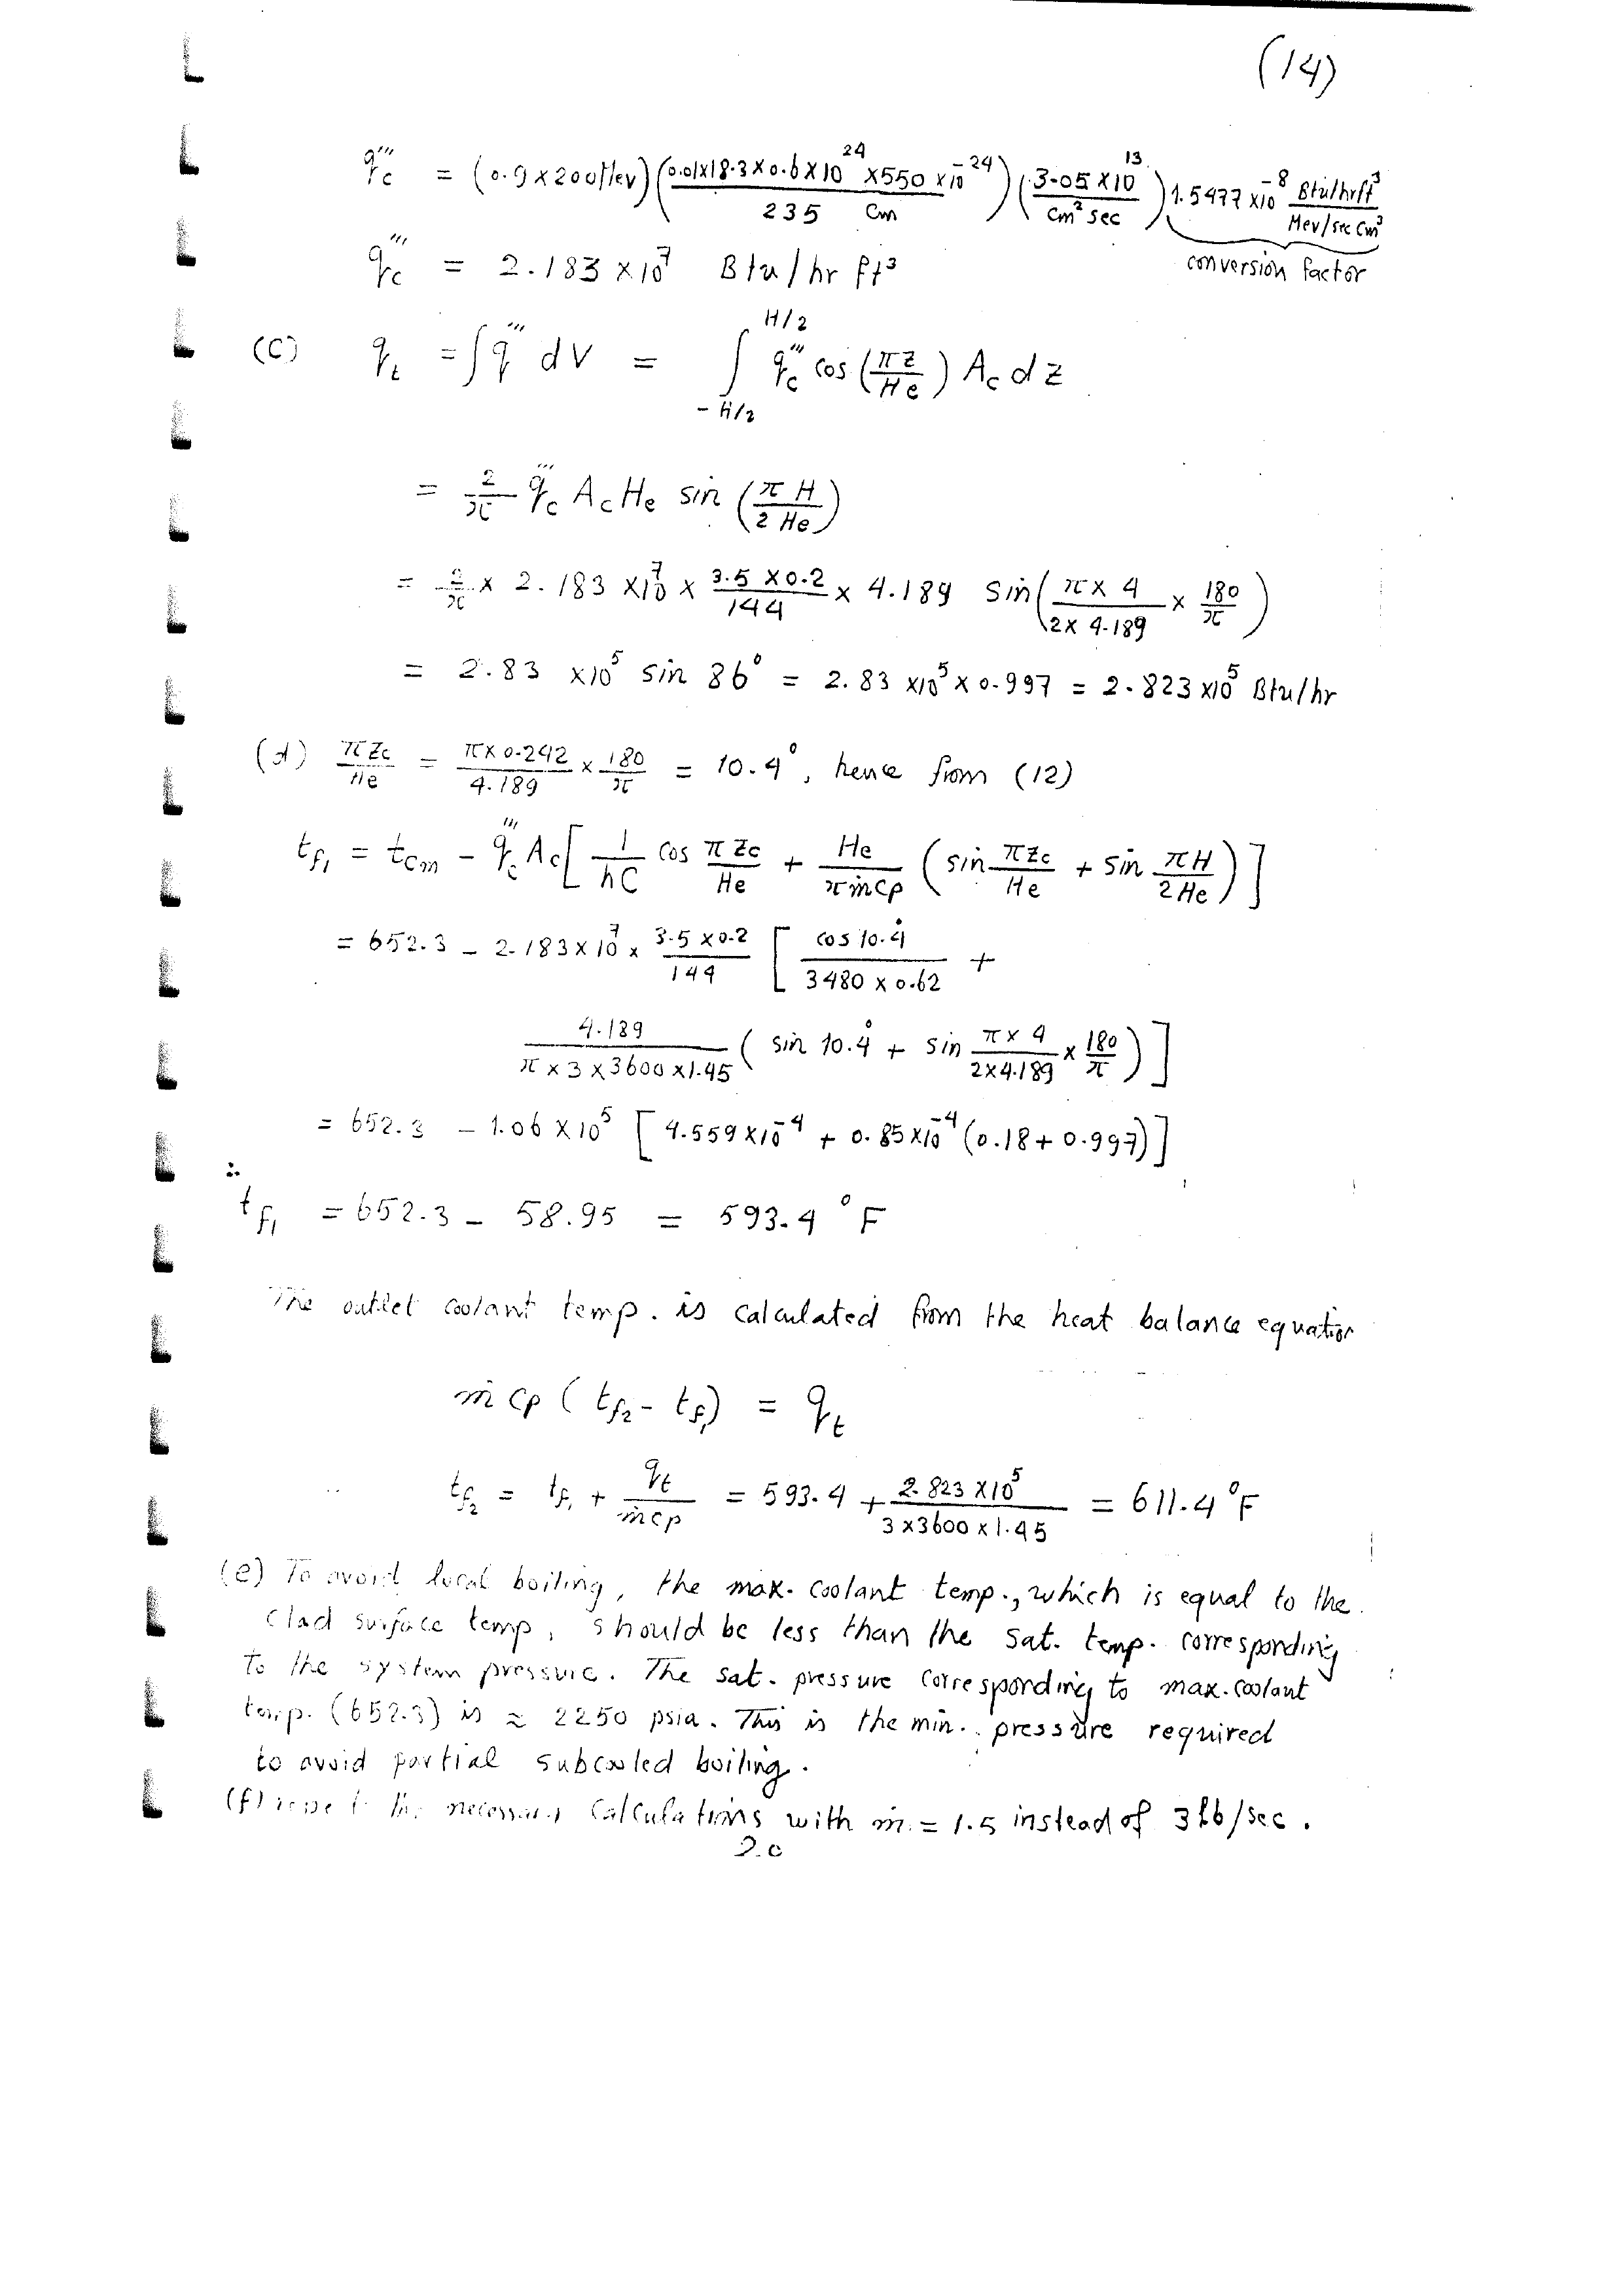 (14)
q_c''' = (0.9×200 Mev)(0.01×18.3×0.6×10^24 ×550×10^-24 / 235 cm)(3.05×10^13 / cm² sec) 1.5477×10^-8 Btu/hrft³ / Mev/sec cm³
conversion factor
q_c''' = 2.183×10^7 Btu/hr ft³
(C) q_t = ∫q''' dV = ∫_{-H/2}^{H/2} q_c''' cos(πz/He) A_c dz
= 2/π q_c''' A_c He sin(πH/2He)
= 2/π × 2.183×10^7 × 3.5×0.2/144 × 4.189 sin(π×4/2×4.189 × 180/π)
= 2.83×10^5 sin 86° = 2.83×10^5×0.997 = 2.823×10^5 Btu/hr
(d) πZc/He = π×0.242/4.189 × 180/π = 10.4°, hence from (12)
t_f1 = t_cm − q_c''' A_c [1/hC cos πZc/He + He/πṁcp (sin πZc/He + sin πH/2He)]
= 652.3 − 2.183×10^7 × 3.5×0.2/144 [cos 10.4°/3480×0.62 +
4.189/π×3×3600×1.45 (sin 10.4° + sin π×4/2×4.189 × 180/π)]
= 652.3 − 1.06×10^5 [4.559×10^-4 + 0.85×10^-4 (0.18+0.997)]
∴
t_f1 = 652.3 − 58.95 = 593.4 °F
The outlet coolant temp. is calculated from the heat balance equation
ṁ cp (t_f2 − t_f1) = q_t
t_f2 = t_f1 + q_t/ṁcp = 593.4 + 2.823×10^5/3×3600×1.45 = 611.4 °F
(e) To avoid local boiling, the max. coolant temp., which is equal to the
clad surface temp, should be less than the sat. temp. corresponding
to the system pressure. The sat. pressure corresponding to max. coolant
temp. (652.3) is ≈ 2250 psia. This is the min. pressure required
to avoid partial subcooled boiling.
(f) the necessary calculations with ṁ = 1.5 instead of 3 lb/sec.